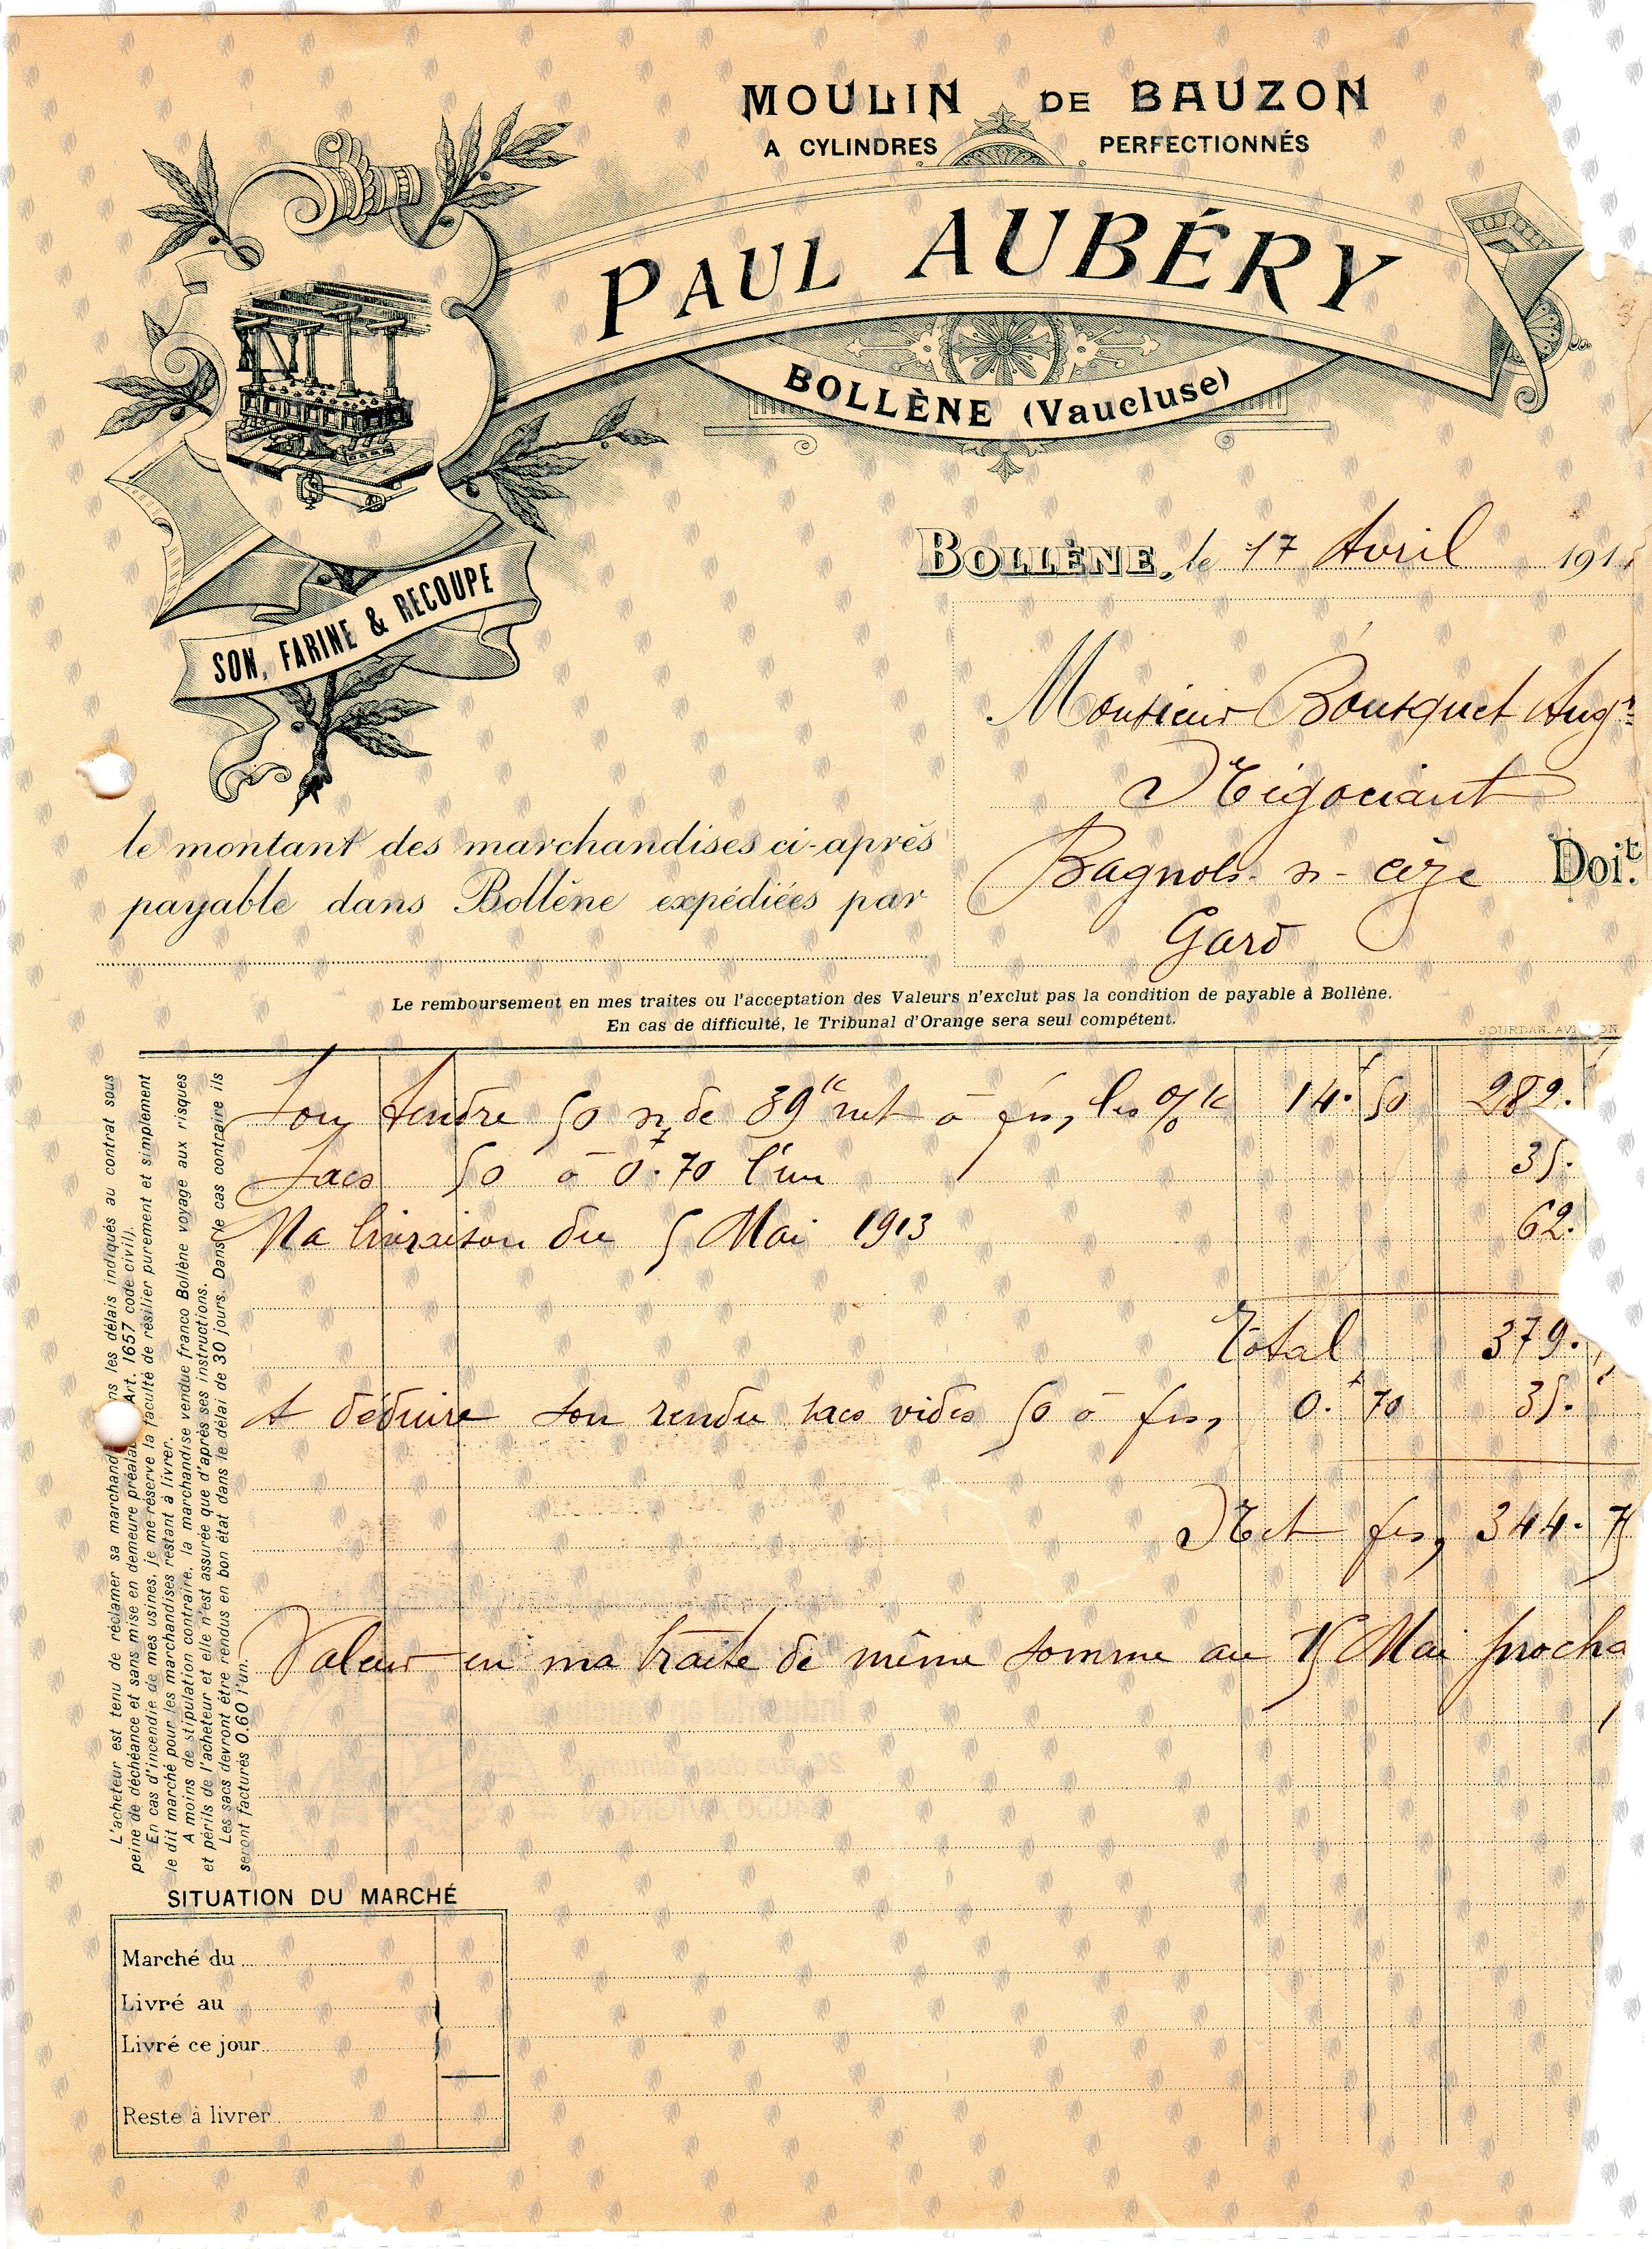 MOULIN DE BAUZON
A CYLINDRES PERFECTIONNÉS
PAUL AUBÉRY
BOLLÈNE (Vaucluse)
SON, FARINE & RECOUPE
BOLLÈNE, le 17 Avril 191
Monsieur Bousquet Augte
Négociant
Bagnols-s-cèze Doit
Gard
le montant des marchandises ci-après
payable dans Bollène expédiées par
Le remboursement en mes traites ou l'acceptation des Valeurs n'exclut pas la condition de payable à Bollène.
En cas de difficulté, le Tribunal d'Orange sera seul compétent.
JOURDAN. AVI ON
Son tendre 50 s/ de 39k net à frs, les %k 14.50 282.
Sacs 50 à 0.70 l'un 35.
Ma livraison du 5 Mai 1913 62.
Total 379.
A déduire son rendu sacs vides 50 à frs, 0.70 35.
Net frs, 344.75
Valeur en ma traite de même somme au 15 Mai procha
L'acheteur est tenu de réclamer sa marchand ns les délais indiqués au contrat sous
peine de déchéance et sans mise en demeure préalab Art. 1657 code civil).
En cas d'incendie de mes usines, je me réserve la faculté de résilier purement et simplement
le dit marché pour les marchandises restant à livrer.
A moins de stipulation contraire, la marchandise vendue franco Bollène voyage aux risques
et périls de l'acheteur et elle n'est assurée que d'après ses instructions.
Les sacs devront être rendus en bon état dans le délai de 30 jours. Dans le cas contraire ils
seront facturés 0.60 l'un.
SITUATION DU MARCHÉ
Marché du
Livré au
Livré ce jour
Reste à livrer